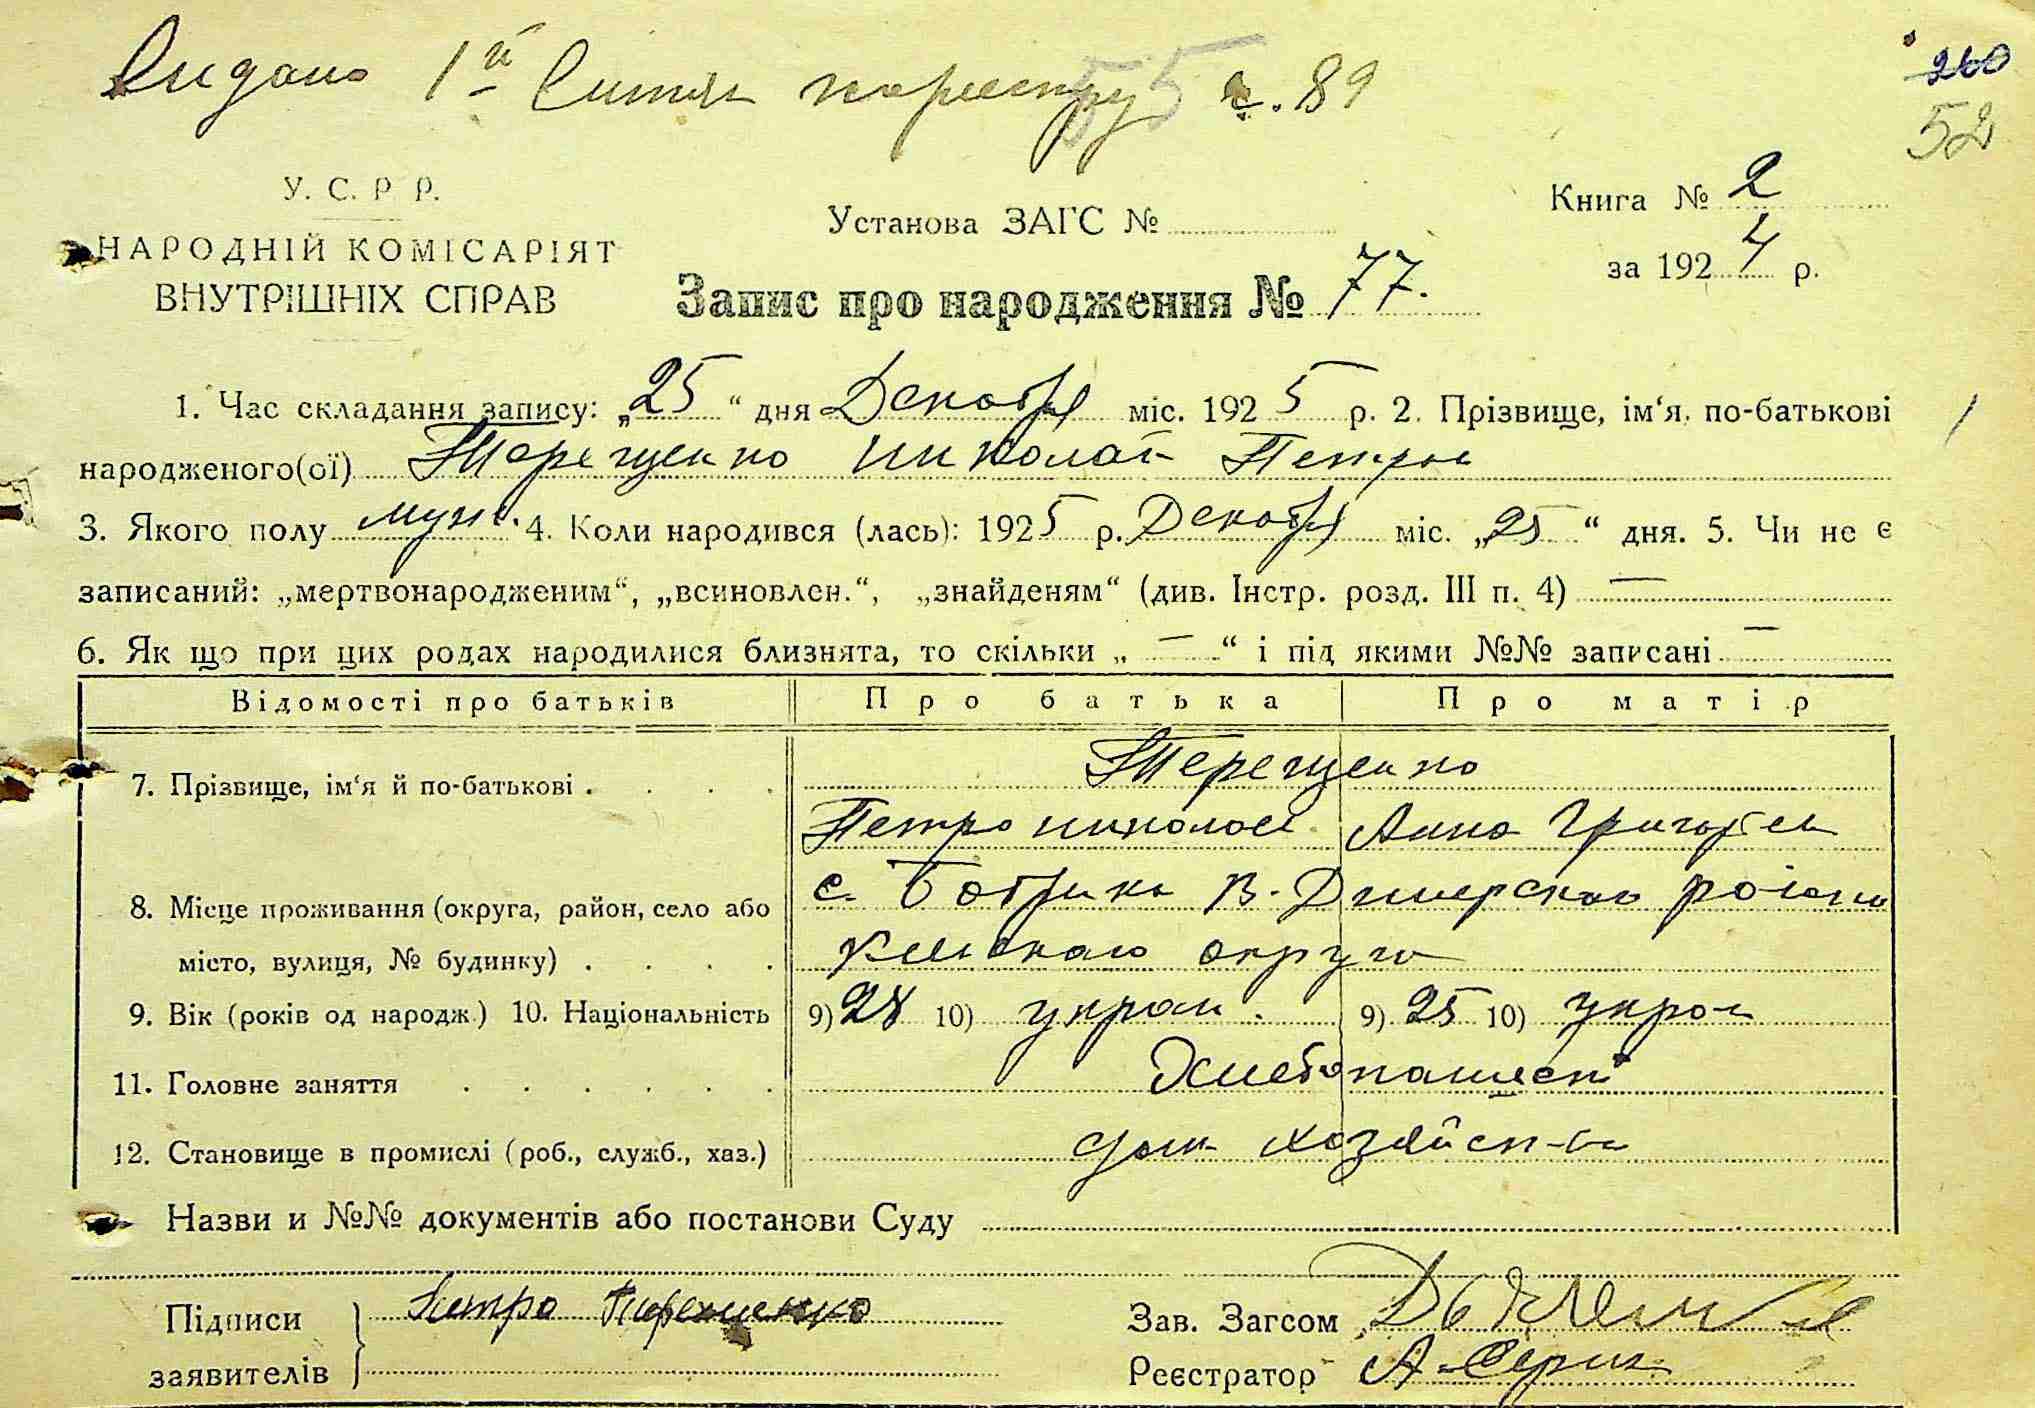 Видано 1й 55 с. 89
260
52
У. С. Р Р.
НАРОДНІЙ КОМІСАРІЯТ
ВНУТРІШНІХ СПРАВ
Установа ЗАГС №
Книга № 2
за 1924 р.
Запис про народження № 77.
1. Час складання запису: „25“ дня Декабря міс. 1925 р. 2. Прізвище, ім‘я, по-батькові
народженого(ої) Терещенко Николай Петров
3. Якого полу муж. 4. Коли народився (лась): 1925 р. Декабря міс. „25“ дня. 5. Чи не є
записаний: „мертвонародженим“, „всиновлен.“, „знайденям“ (див. Інстр. розд. III п. 4) —
6. Як що при цих родах народилися близнята, то скільки „ — “ і під якими №№ записані —
Відомості про батьків Про батька Про матір
7. Прізвище, ім‘я й по-батькові . . . . Терещенко
Петро Николаев Анна Григорьев
8. Місце проживання (округа, район, село або с. Бобрик В-Дымерского района
місто, вулиця, № будинку) . . . . Киевского округа
9. Вік (років од народж.) 10. Національність 9) 28 10) украин. 9) 25 10) украин
11. Головне заняття . . . . . . Хлебопашест
12. Становище в промислі (роб., служб., хаз.) дом хозяйст-ва
Назви и №№ документів або постанови Суду
Підписи заявителів Петро Терещенко
Зав. Загсом
Реєстратор А. Серик